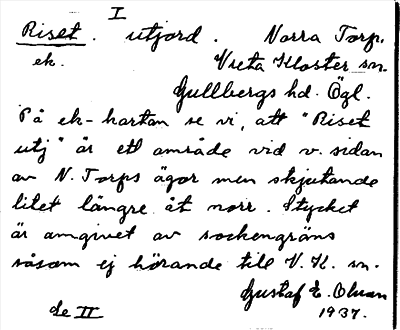 I
Riset. utjord. Norra Torp.
ek. Vreta Kloster sn.
Gullbergs hd. Ögl.
På ek-kartan se vi, att "Riset
utj" är ett område vid v. sidan
av N. Torps ägor men skjutande
litet längre åt norr. Stycket
är omgivet av sockengräns
såsom ej hörande till V.K. sn.
Gustaf E. Olsson
se II 1937.